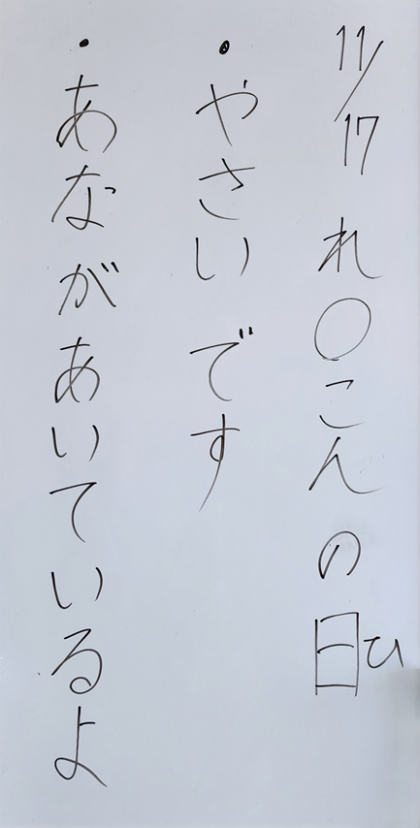 11/17 れ○こんの日ひ
・やさいです
・あながあいているよ